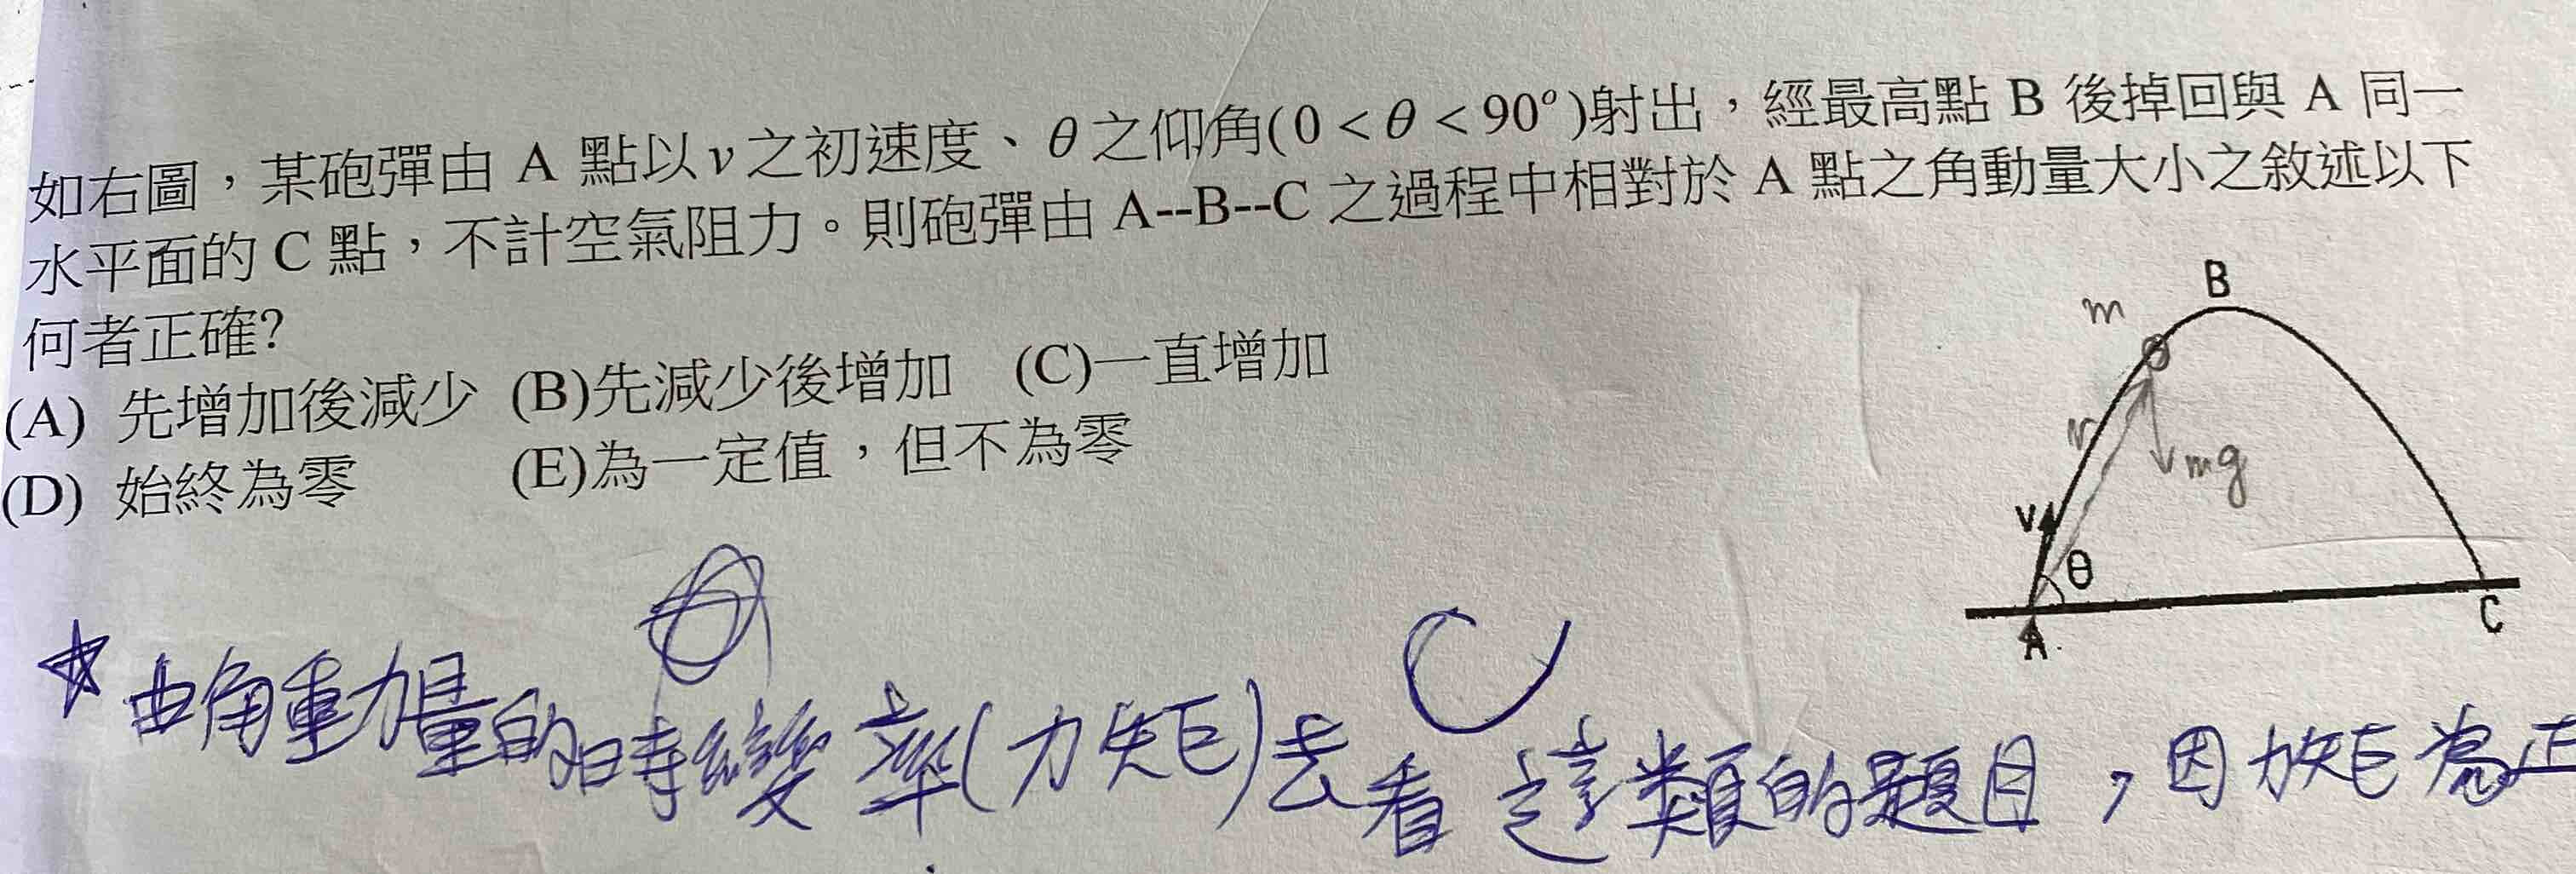 如右圖，某砲彈由 A 點以v之初速度、θ之仰角(0＜θ＜90°)射出，經最高點 B 後掉回與 A 同一
水平面的 C 點，不計空氣阻力。則砲彈由 A--B--C 之過程中相對於 A 點之角動量大小之敘述以下
何者正確?
(A) 先增加後減少 (B)先減少後增加 (C)一直增加
(D) 始終為零 (E)為一定值，但不為零
B
m
r
mg
v
θ
A
C
☆由角動量的時變率(力矩)去看這類的題目，因力矩為正